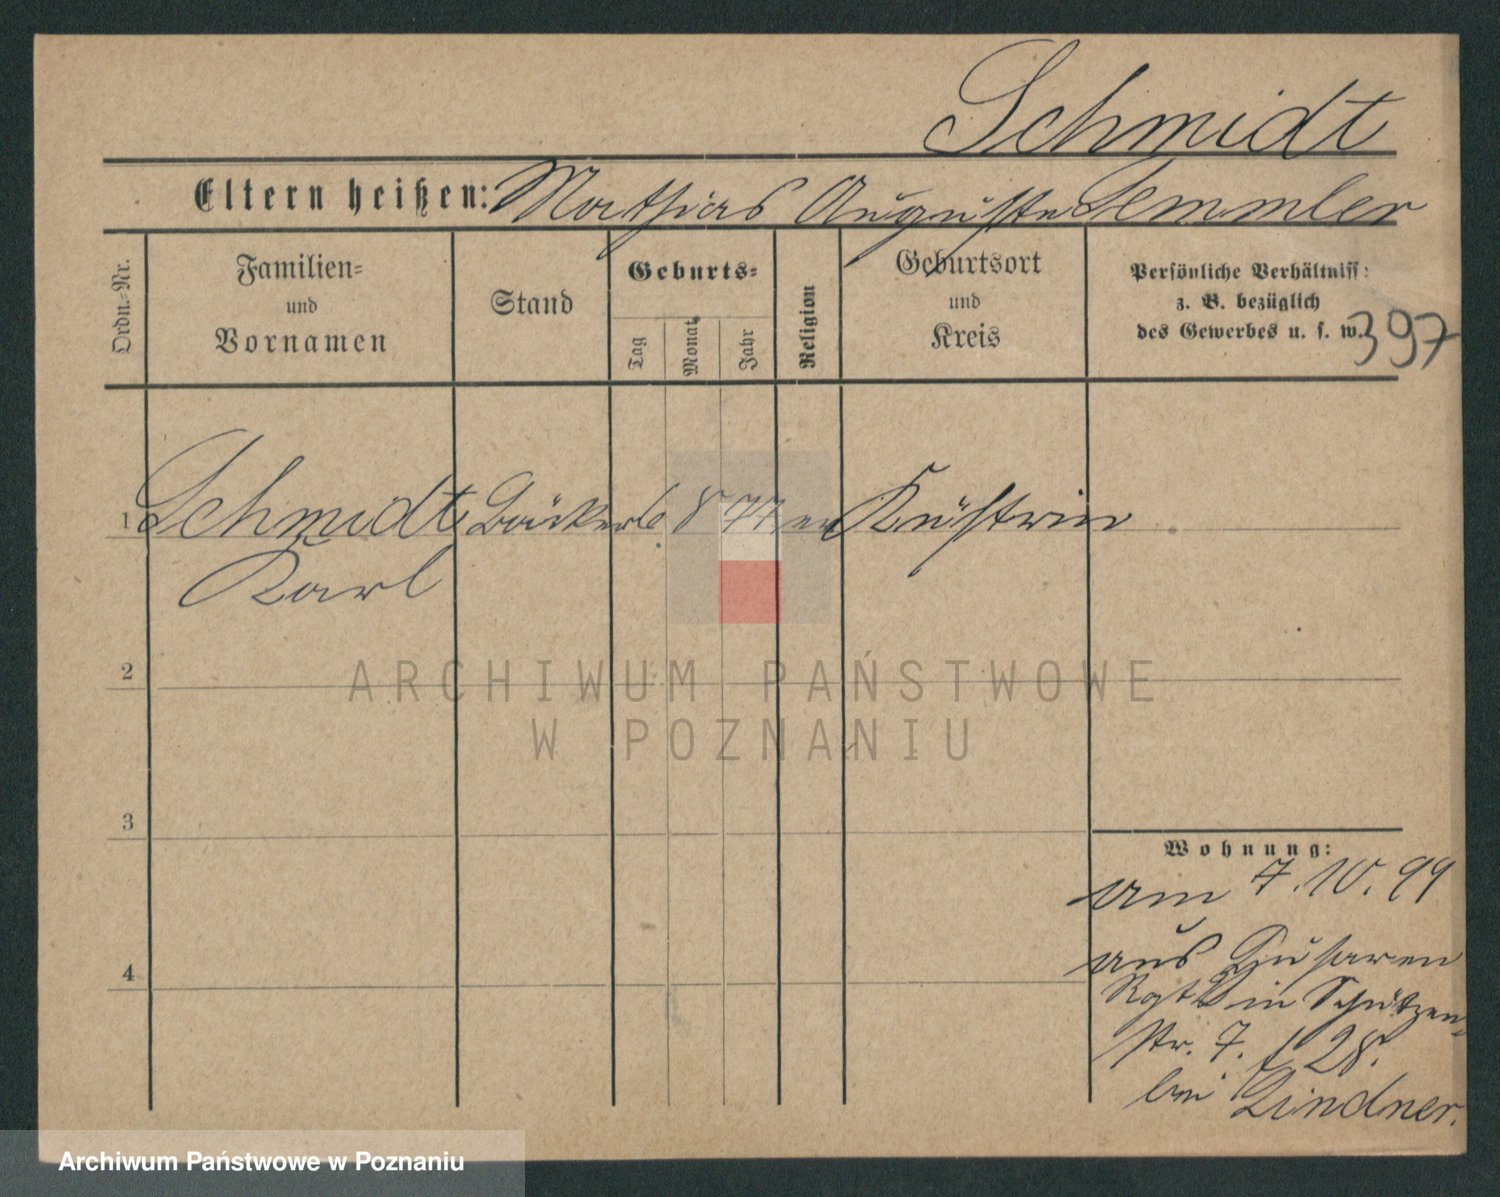 Schmidt
Eltern heißen: Mathias Auguste Semmler
Ordn.-Nr.
Familien-
und
Vornamen
Stand
Geburts-
Tag
Monat
Jahr
Religion
Geburtsort
und
Kreis
Persönliche Verhältniss:
z. B. bezüglich
des Gewerbes u. s. w.
397
1 Schmidt Bäcker 6 8 77 ev Küstrin
Karl
2
ARCHIWUM PAŃSTWOWE
W POZNANIU
3
4
Wohnung:
am 7.10.99
aus Husaren
Rgt in Schützen-
str. 7. 28.
bei Lindner.
Archiwum Państwowe w Poznaniu